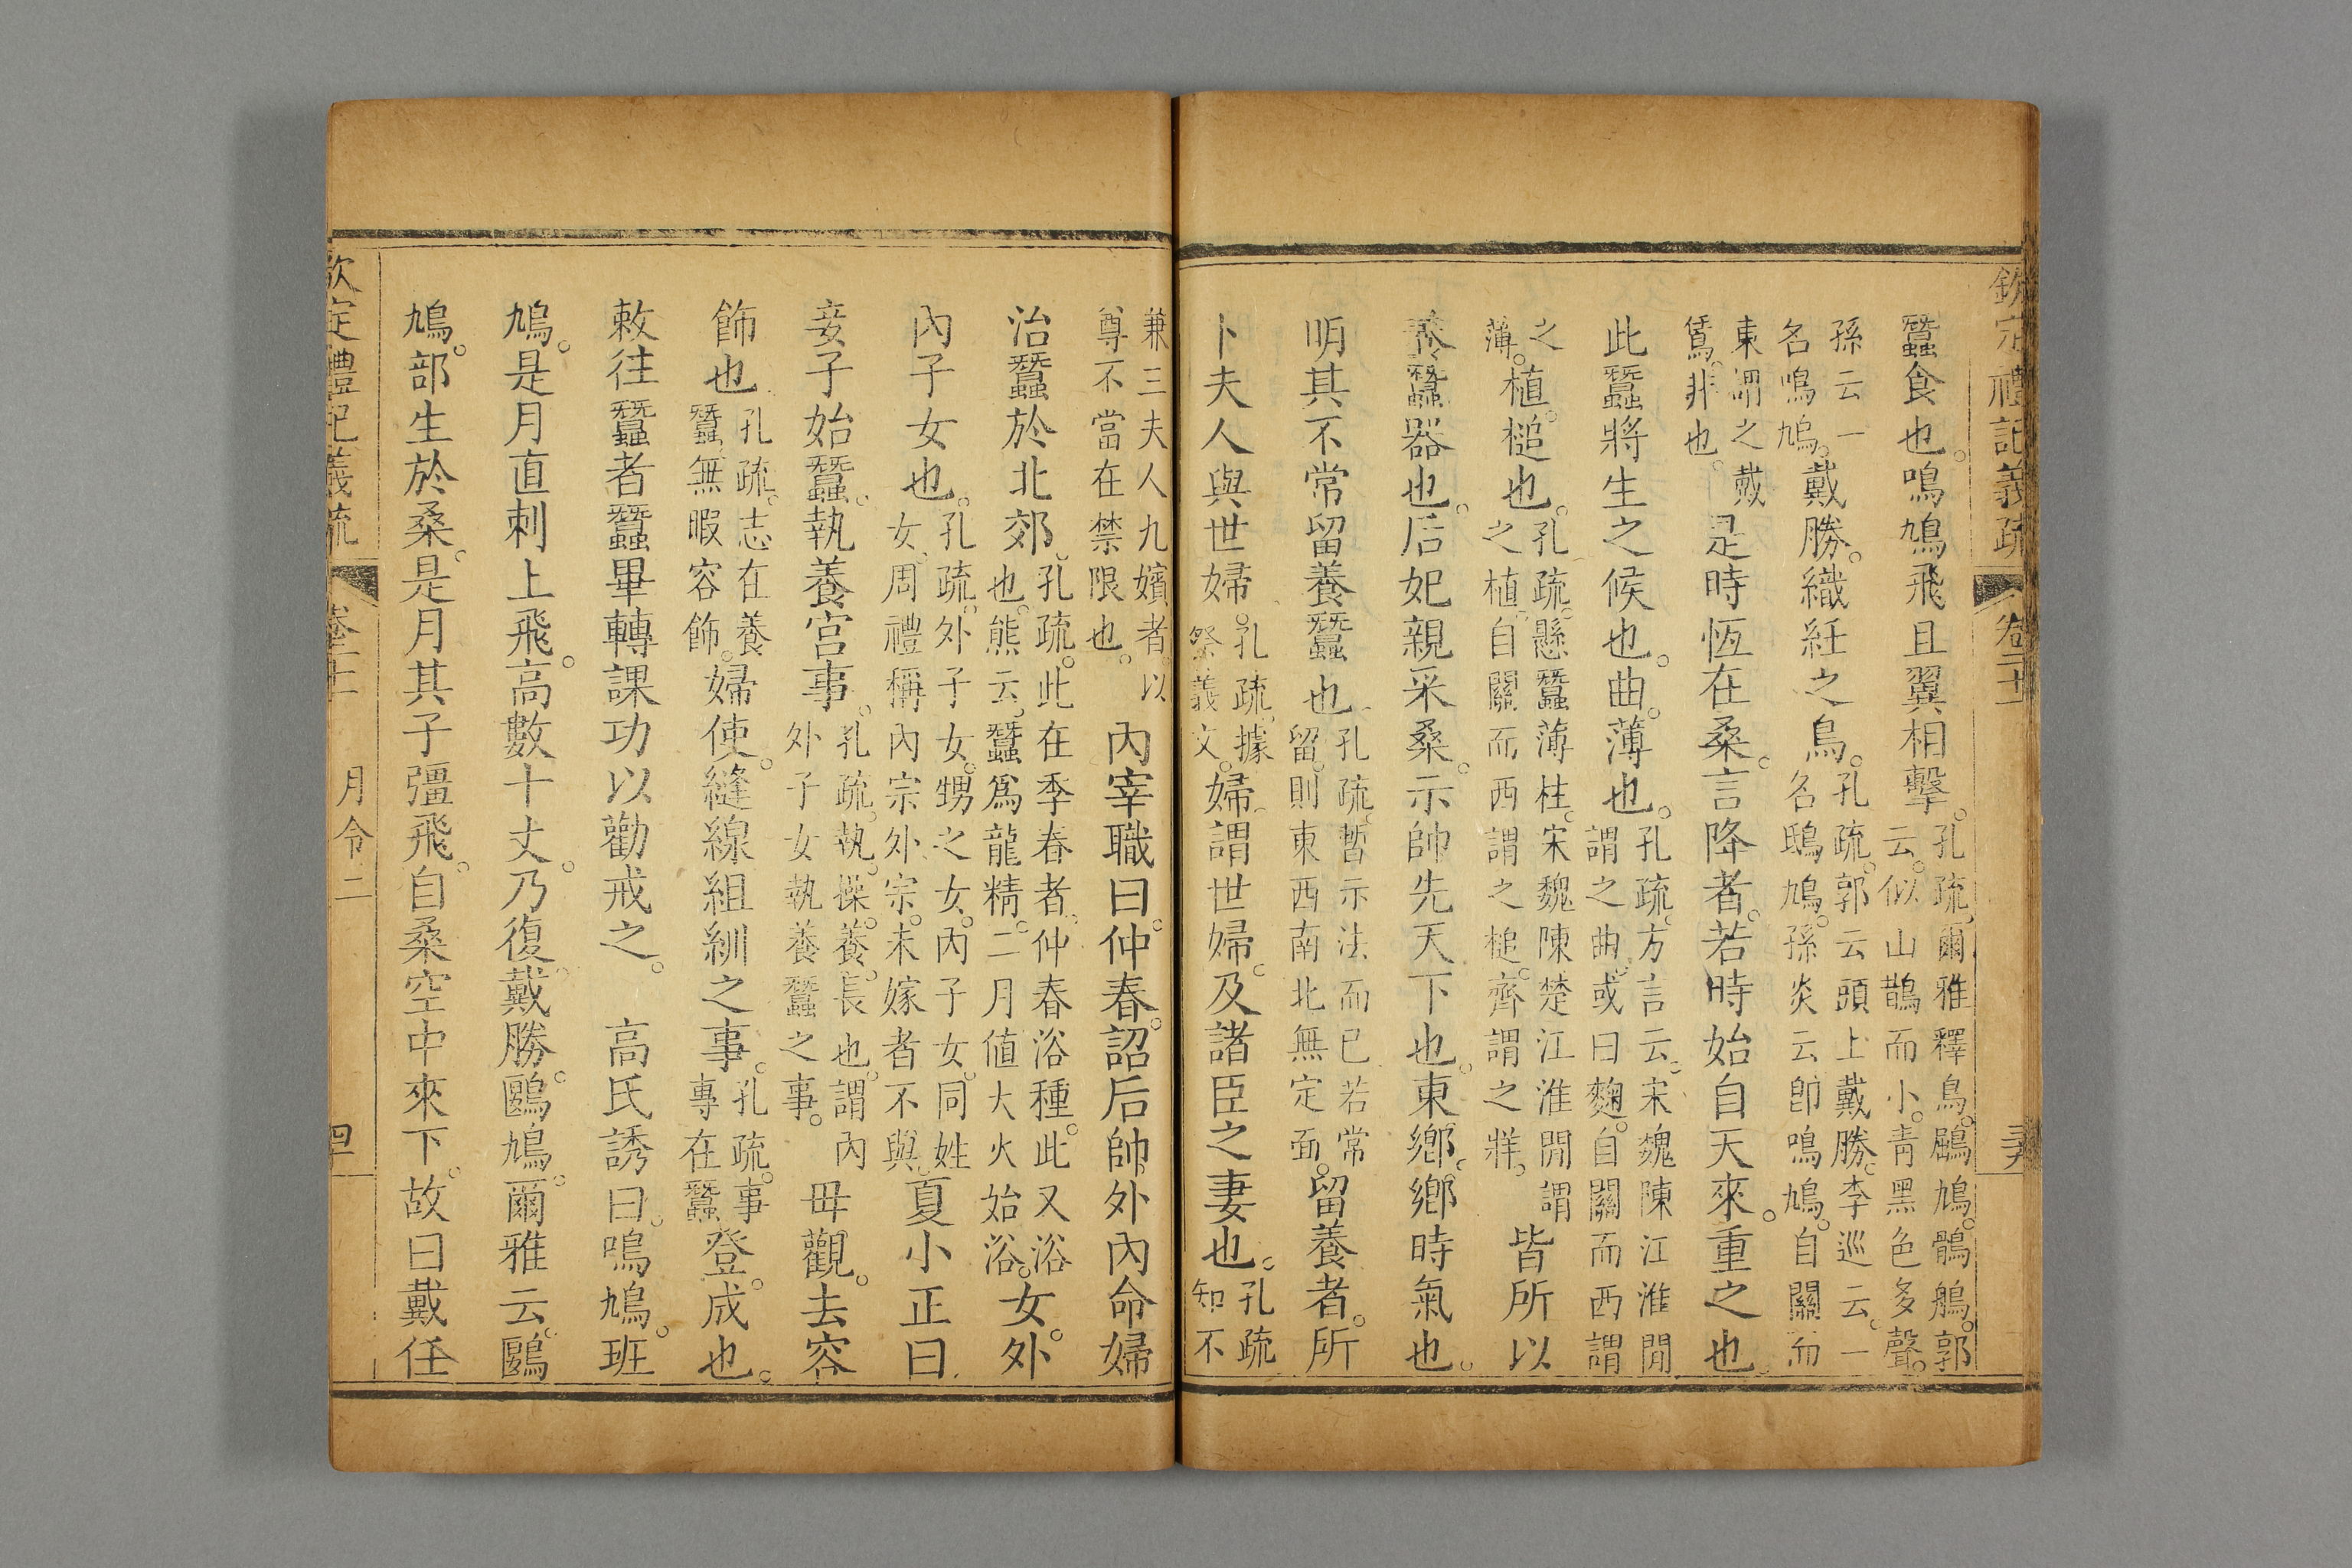 欽定禮記義疏
蠶食也。鳴鳩飛且翼相擊。
孔疏。爾雅釋鳥。鶌鳩。鶻鵃。郭
云。似山鵲而小。青黑色多聲。
孫云一
名鳴鳩。
戴勝。織紝之鳥。
孔疏。郭云頭上戴勝。李巡云。一
名鴟鳩。孫炎云卽鳴鳩。自關而
東謂之戴
鵀。非也。
是時恆在桑。言降者。若時始自天來。重之也。
此蠶將生之候也。曲。薄也。
孔疏。方言云。宋魏陳江淮閒
謂之曲。或曰麴。自關而西謂
之
薄。
植。槌也。
孔疏。懸蠶薄柱。宋魏陳楚江淮閒謂
之植。自關而西謂之槌。齊謂之牂。
皆所以
養蠶器也。后妃親采桑。示帥先天下也。東鄉。鄉時氣也。
明其不常留養蠶也。
孔疏。暫示法而已。若常
留。則東西南北無定面。
留養者。所
卜夫人與世婦。
孔疏。據
祭義文。
婦。謂世婦。及諸臣之妻也。
孔疏
知不
兼三夫人九嬪者。以
尊不當在禁限也。
內宰職曰。仲春。詔后帥外內命婦
治蠶於北郊。
孔疏。此在季春者。仲春浴種。此又浴
也。熊云。蠶爲龍精。二月値大火始浴。
女。外
內子女也。
孔疏。外子女。甥之女。內子女。同姓
女。周禮稱內宗外宗。未嫁者不與。
夏小正曰。
妾子始蠶。執養宮事。
孔疏。執。操。養。長也。謂內
外子女執養蠶之事。
毋觀。去容
飾也。
孔疏。志在養
蠶。無暇容飾。
婦使。縫線組紃之事。
孔疏。事
專在蠶
登。成也。
敕往蠶者蠶畢轉課功以勸戒之。
高氏誘曰。鳴鳩。班
鳩。是月直刺上飛。高數十丈。乃復。戴勝。鴎鳩。爾雅云。鴎
鳩。部生於桑。是月其子彊飛。自桑空中來下。故曰戴任
月令二